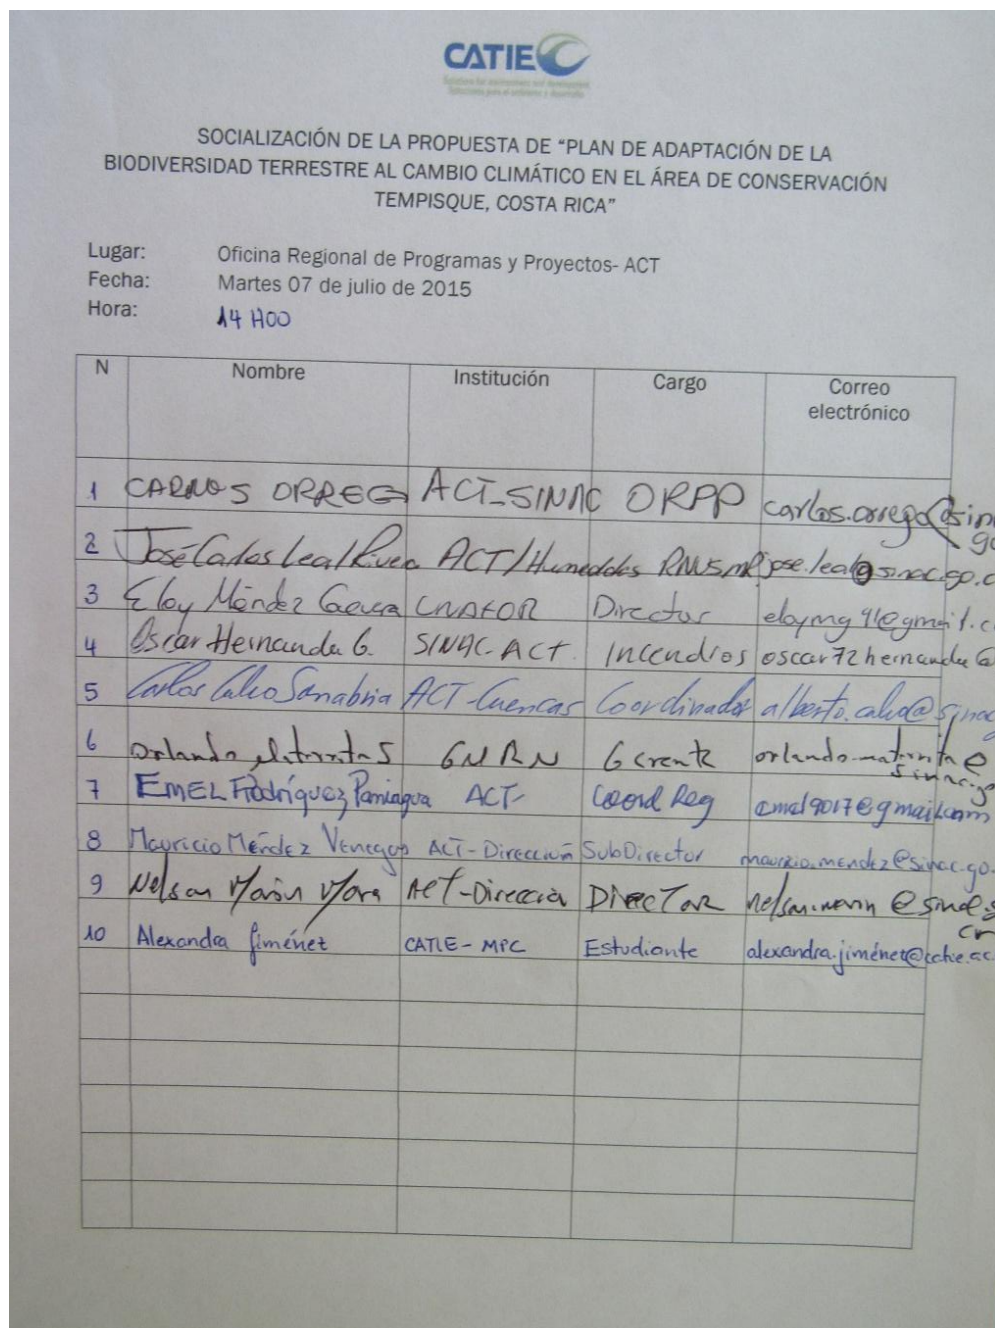 CATIE
Solutions for environment and development
Soluciones para el ambiente y desarrollo
SOCIALIZACIÓN DE LA PROPUESTA DE "PLAN DE ADAPTACIÓN DE LA
BIODIVERSIDAD TERRESTRE AL CAMBIO CLIMÁTICO EN EL ÁREA DE CONSERVACIÓN
TEMPISQUE, COSTA RICA"
Lugar: Oficina Regional de Programas y Proyectos- ACT
Fecha: Martes 07 de julio de 2015
Hora: 14 H00
N Nombre Institución Cargo Correo
electrónico
1 CARLOS ORREGO ACT-SINAC ORPP carlos.orrego@sin
go
2 José Carlos Leal Rivera ACT/Humedales jose.leal@sinac.go.c
3 Eloy Méndez Director eloymg91@gmail.c
4 Oscar Hernandez G. SINAC-ACT. Incendios oscar72hernandez
5 Carlos Calvo Sanabria ACT-Cuencas Coordinador alberto.calvo@sinac
6 Orlando GNRN Gerente
7 EMEL Rodríguez Paniagua ACT- Coord Reg emel9017@gmail.com
8 Mauricio Méndez Venegas ACT-Dirección SubDirector mauricio.mendez@sinac.go.
9 Nelson Marín Mora ACT-Dirección DirecTor nelson.marin@sinac.g
cr
10 Alexandra Jiménez CATIE-MPC Estudiante alexandra.jiménez@catie.ac.